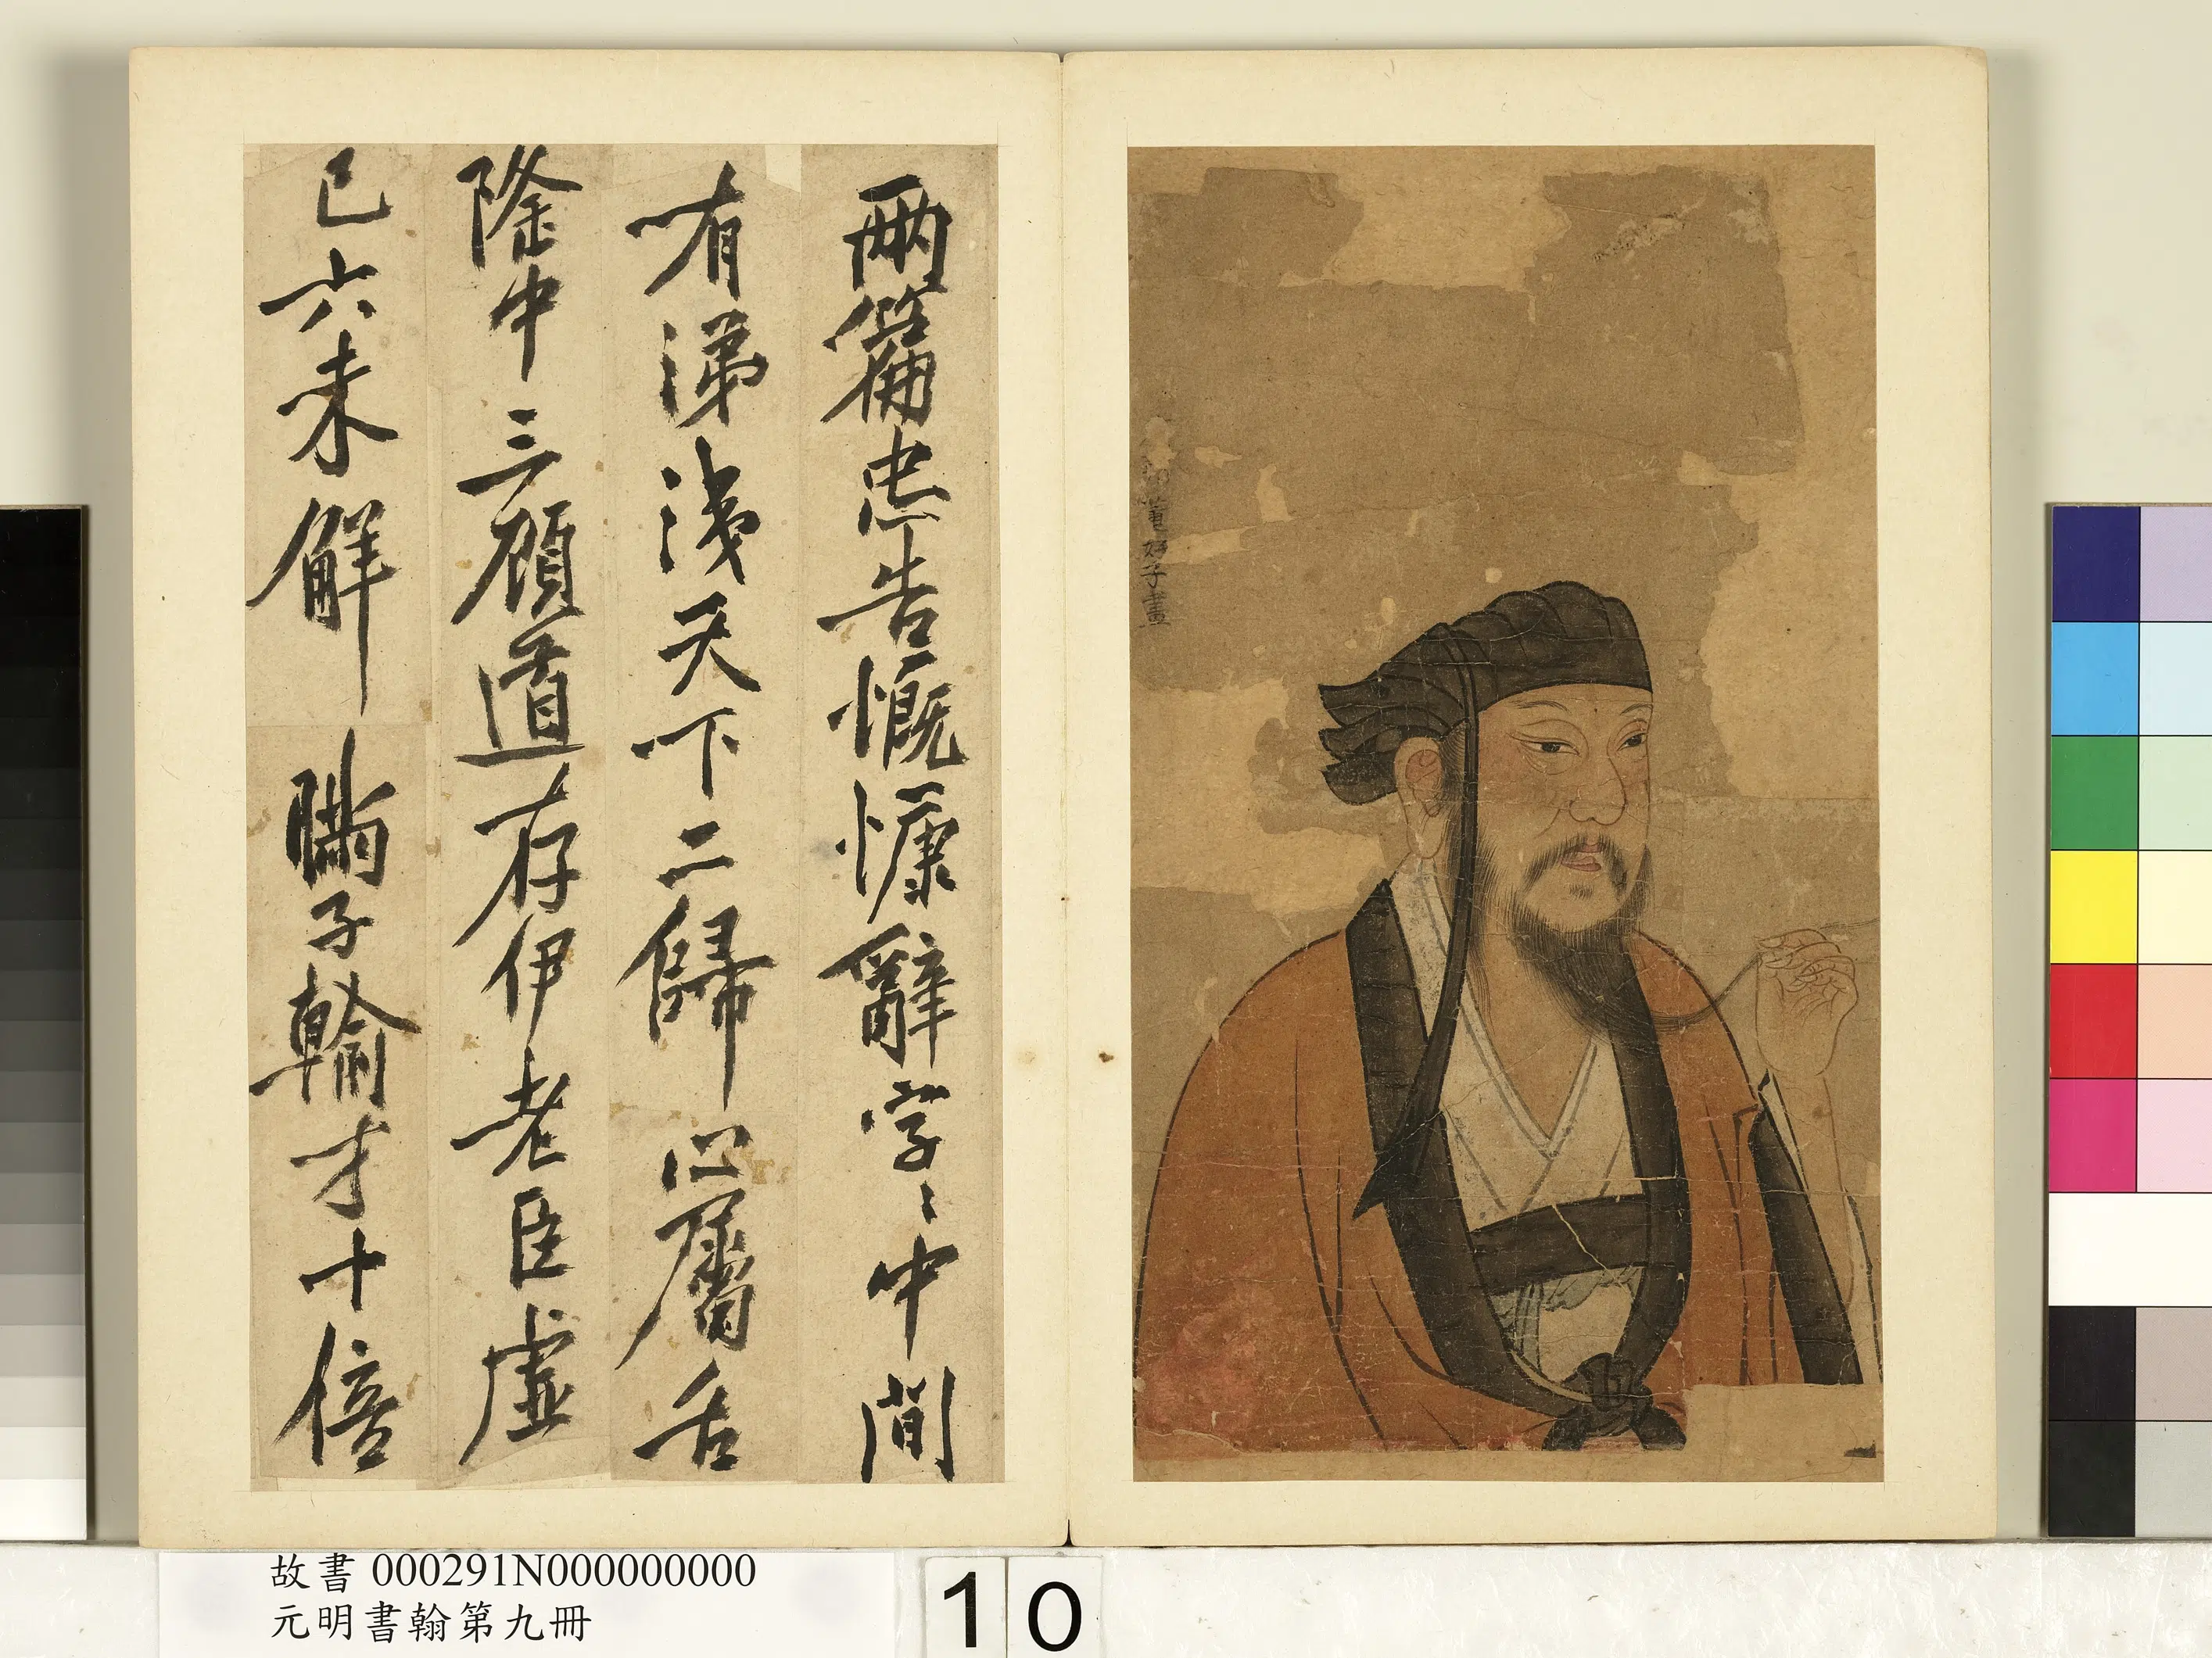 子畫
兩篇忠告慨慷辭字〻中間
有涕洟天下二歸心屬
隆中三顧道存伊老臣虛
已六未解瞞子輸才十倍
故書 000291N000000000
元明書翰第九冊
10